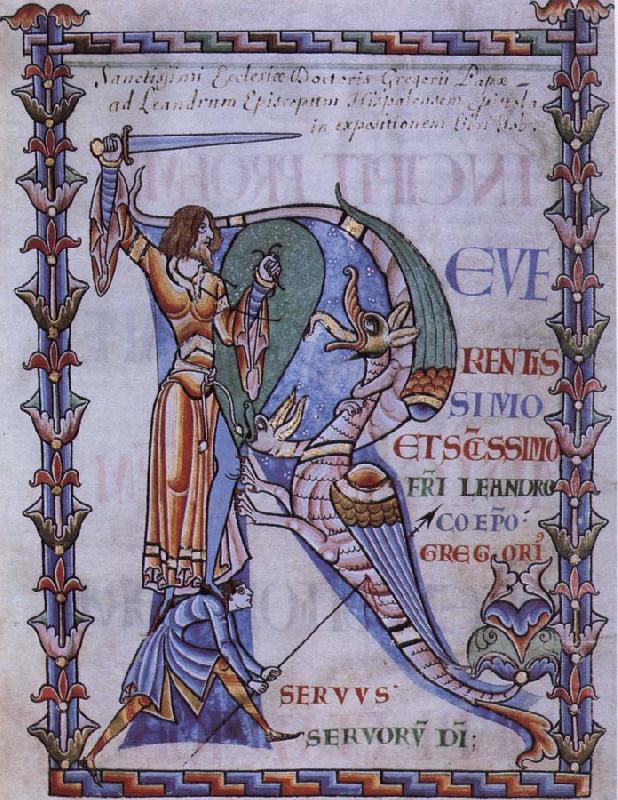 Sanctissimi Ecclesiæ Doctoris Gregorii Papæ
ad Leandrum Episcopum Hispalensem Epistola
in expositionem libri Iob.
INCIPIT PROEM
R
EVE
RENTIS
SIMO
ET SC̄ISSIMO
FR̄I LEANDRO
COEP̄O·
GREGORI
SERVVS·
SERVORV̄ DĪ;